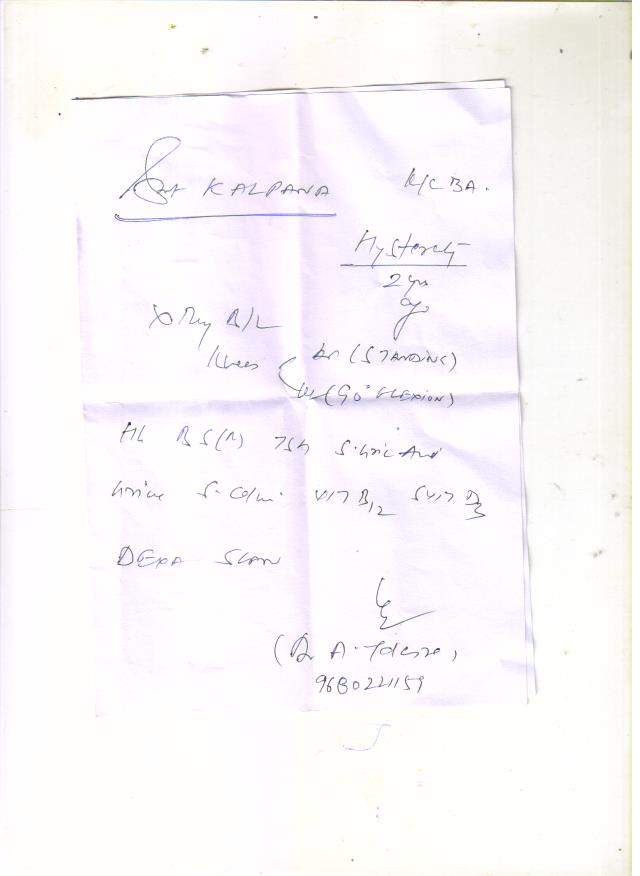 Smt KALPANA
K/C BA.
Hysterecty
2 yrs
ago
X Ray B/L
Knees
AP (STANDING)
Lat (90° FLEXION)
Hb BS(R) TSH S. Uric Acid
Urine S. Calcium VIT B12 S VIT D3
DEXA SCAN
(Dr A.
9680221159